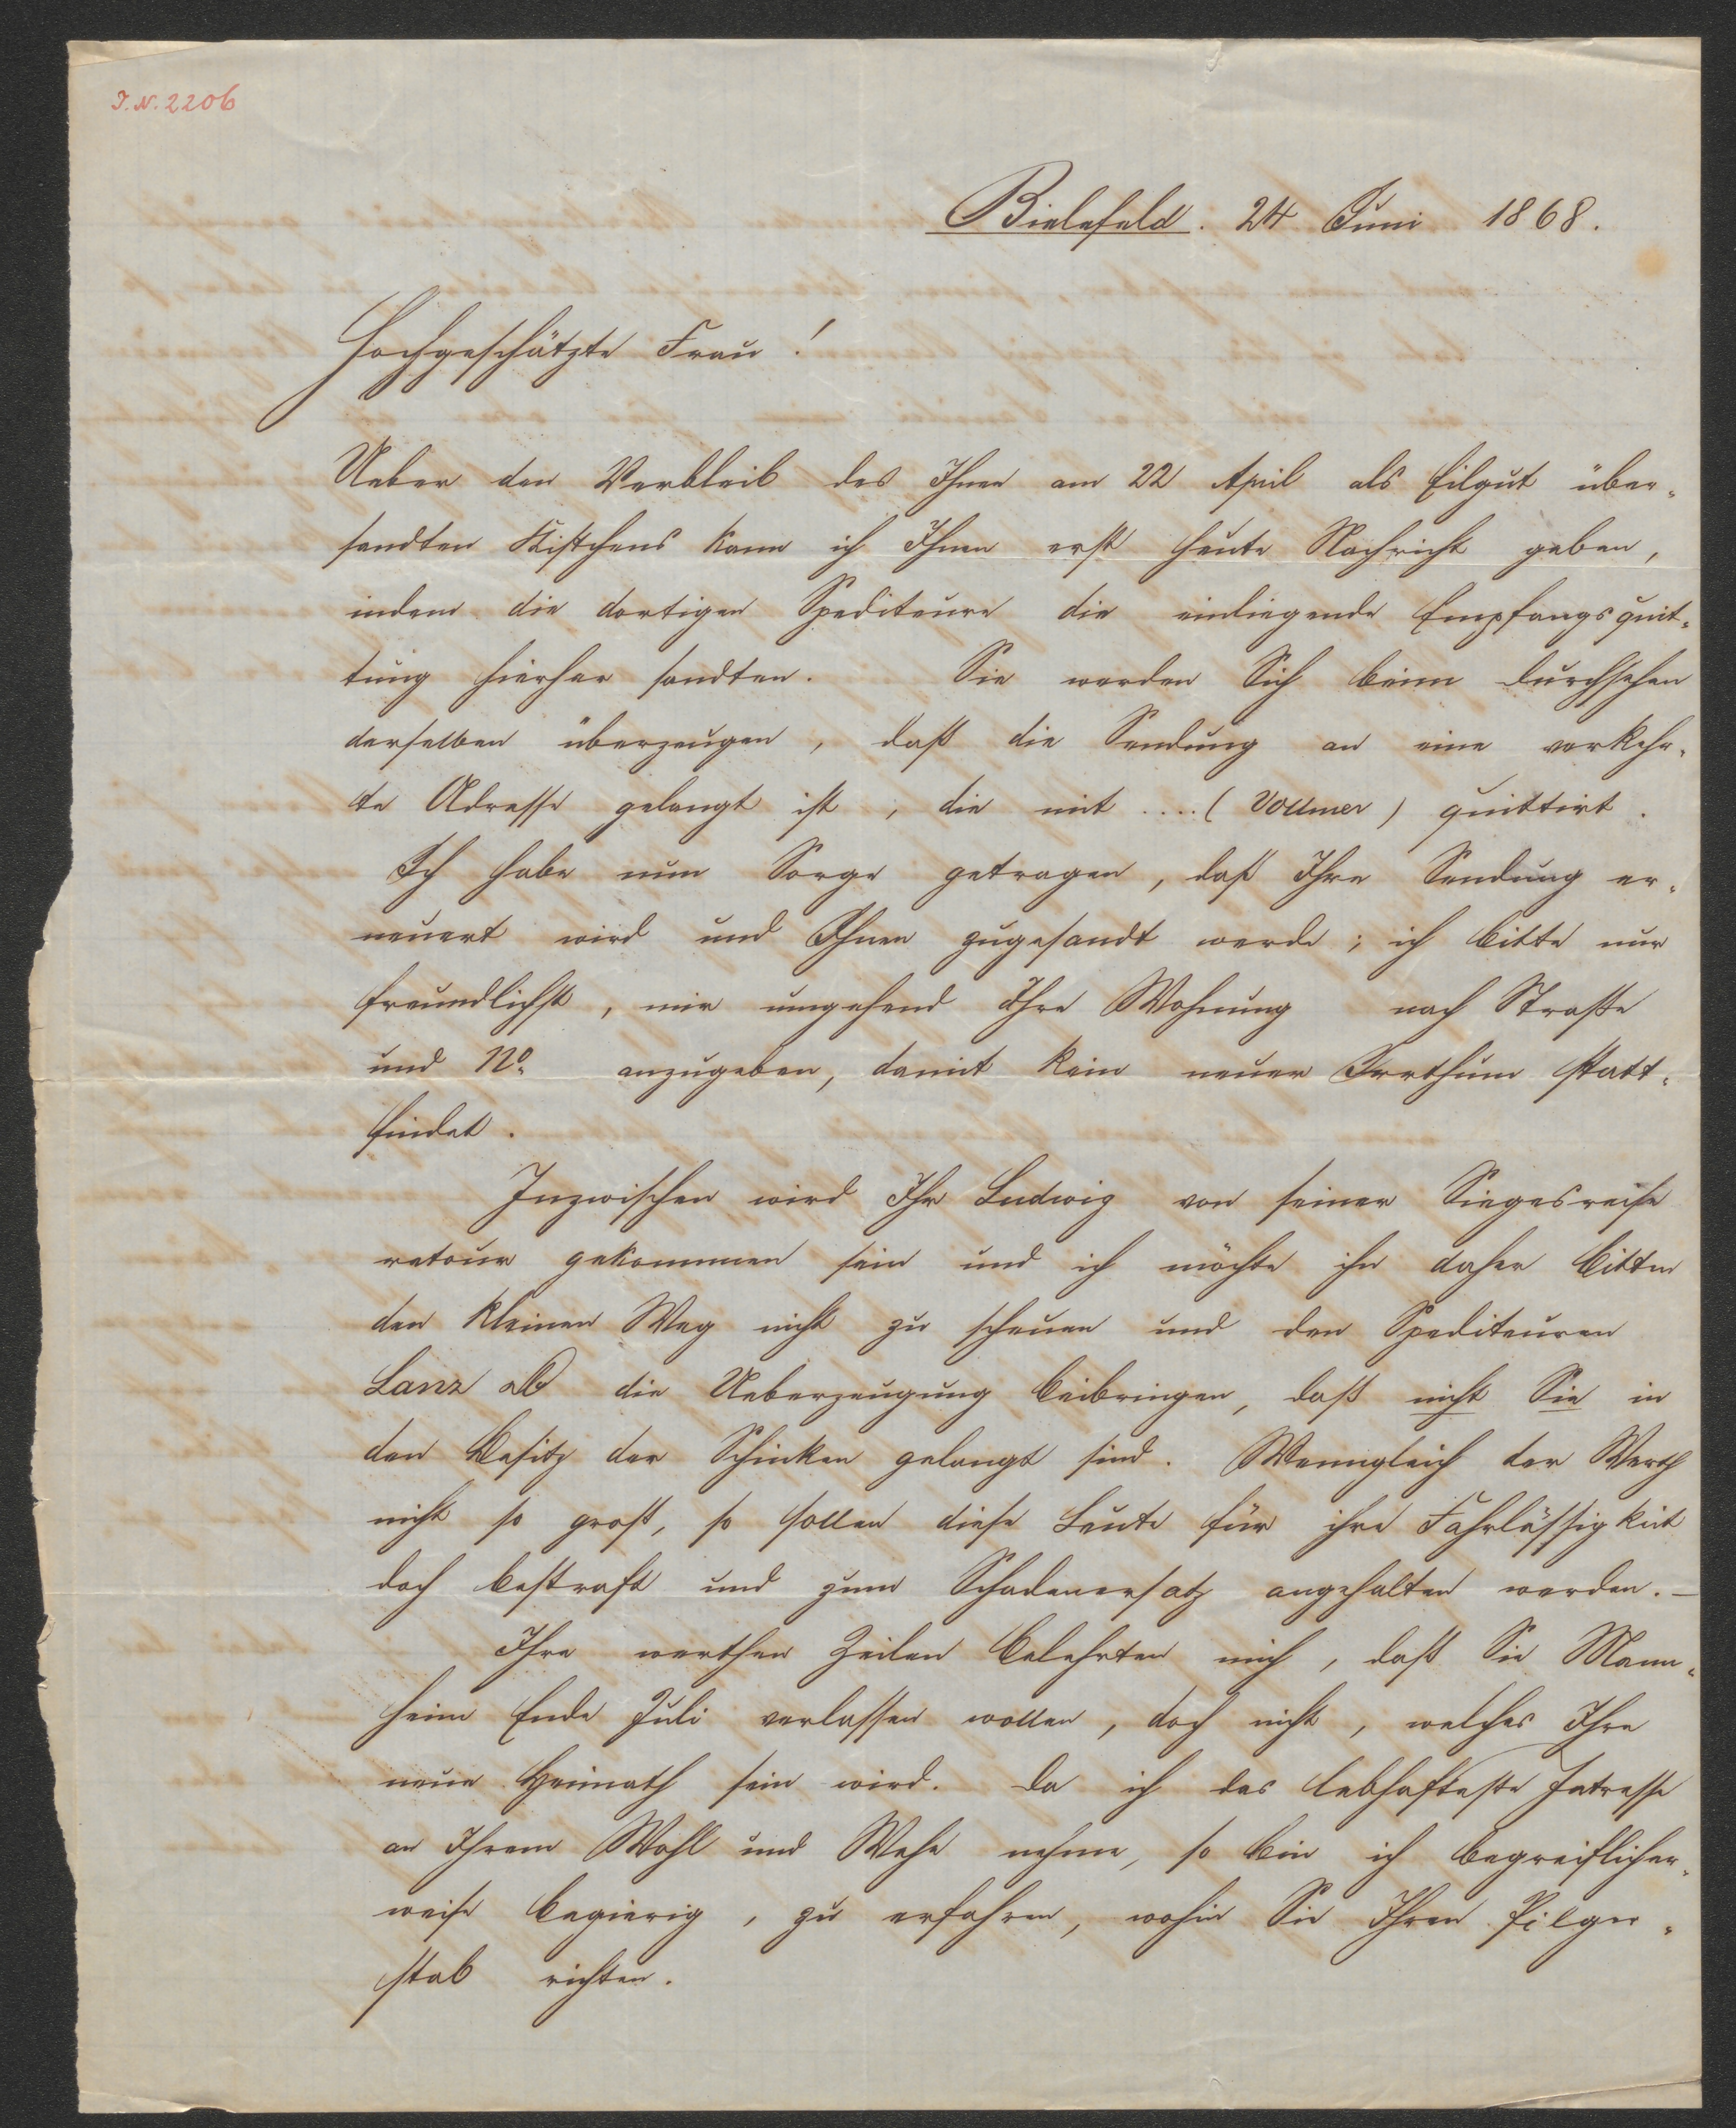 J. N. 2206
Bielefeld. 24 Juni 1868.
Hochgeschätzte Frau!
Ueber den Verbleib des Ihnen am 22 April als Eilgut über-
sandten Kistchens kann ich Ihnen erst heute Nachricht geben,
indem die dortigen Spediteure die einliegende Empfangsquit-
tung hierher sandten. Sie werden Sich beim Durchsehen
derselben überzeugen, daß die Sendung an eine verkehr-
te Adresse gelangt ist, die mit .... (Vollmer) quittirt.
Ich habe nun Sorge getragen, daß Ihre Sendung er-
neuert wird und Ihnen zugesandt werde; ich bitte nur
freundlichst, mir umgehend Ihre Wohnung nach Straße
und No. anzugeben, damit kein neuer Irrthum statt-
findet.
Inzwischen wird Ihr Ludwig von seiner Siegesreise
retour gekommen sein und ich möchte ihn daher bitten
den kleinen Weg nicht zu scheuen und den Spediteuren
Lanz die Ueberzeugung beibringen, daß nicht Sie in
den Besitz der Schinken gelangt sind. Wenngleich der Werth
nicht so groß, so sollen diese Leute für ihre Fahrlässigkeit
doch bestraft und zum Schadenersatz angehalten werden. –
Ihre werthen Zeilen belehrten mich, daß Sie Mann-
heim Ende Juli verlassen wollen, doch nicht, welches Ihre
neue Heimath sein wird. Da ich das lebhafteste Intresse
an Ihrem Wohl und Wehe nehme, so bin ich begreiflicher-
weise begierig, zu erfahren, wohin Sie Ihren Pilger-
stab richten.